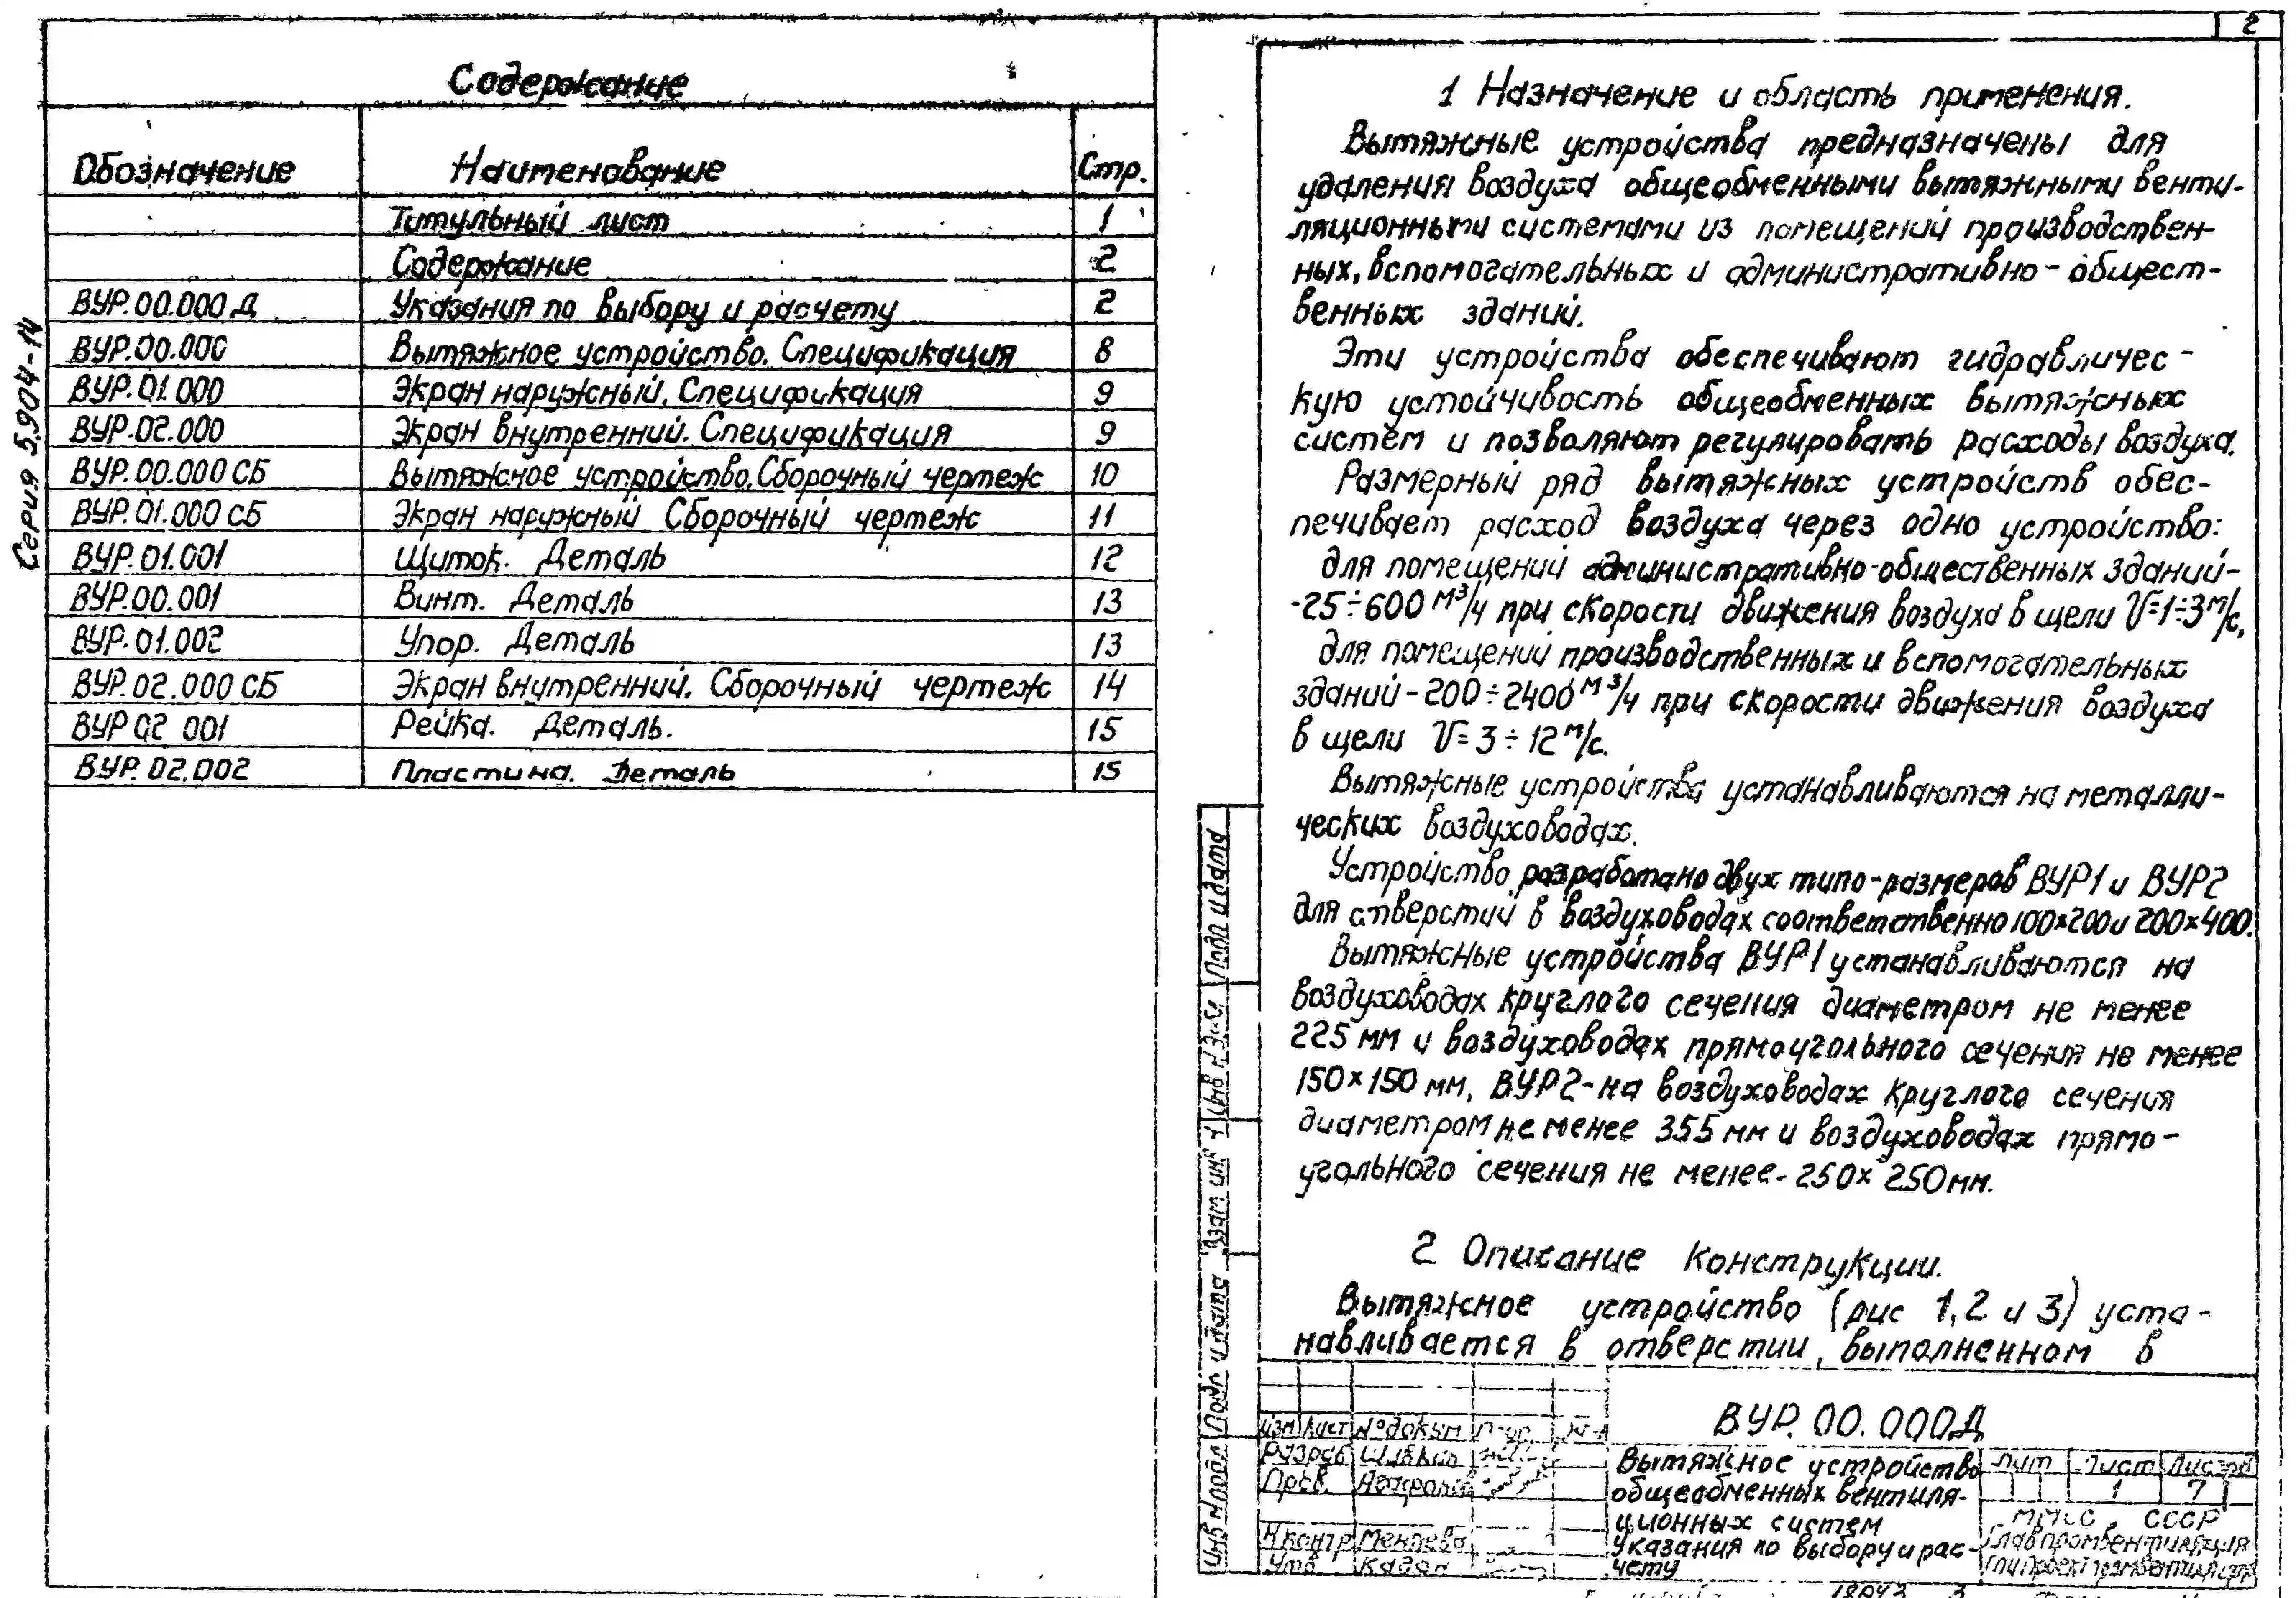 Серия 5.904-14
Содержание
Обозначение Наименование Стр.
Титульный лист 1
Содержание 2
ВУР.00.000 Д Указания по выбору и расчету 2
ВУР.00.000 Вытяжное устройство. Спецификация 8
ВУР.01.000 Экран наружный. Спецификация 9
ВУР.02.000 Экран внутренний. Спецификация 9
ВУР.00.000 СБ Вытяжное устройство. Сборочный чертеж 10
ВУР.01.000 СБ Экран наружный Сборочный чертеж 11
ВУР.01.001 Щиток. Деталь 12
ВУР.00.001 Винт. Деталь 13
ВУР.01.002 Упор. Деталь 13
ВУР.02.000 СБ Экран внутренний. Сборочный чертеж 14
ВУР 02 001 Рейка. Деталь. 15
ВУР.02.002 Пластина. Деталь 15
2
1 Назначение и область применения.
Вытяжные устройства предназначены для
удаления воздуха общеобменными вытяжными венти-
ляционными системами из помещений производствен-
ных, вспомогательных и административно-общест-
венных зданий.
Эти устройства обеспечивают гидравличес-
кую устойчивость общеобменных вытяжных
систем и позволяют регулировать расходы воздуха.
Размерный ряд вытяжных устройств обес-
печивает расход воздуха через одно устройство:
для помещений административно-общественных зданий-
-25÷600 м³/ч при скорости движения воздуха в щели V=1÷3 м/с,
для помещений производственных и вспомогательных
зданий-200÷2400 м³/ч при скорости движения воздуха
в щели V=3÷12 м/с.
Вытяжные устройства устанавливаются на металли-
ческих воздуховодах.
Устройство разработано двух типо-размеров ВУР1 и ВУР2
для отверстий в воздуховодах соответственно 100×200 и 200×400.
Вытяжные устройства ВУР1 устанавливаются на
воздуховодах круглого сечения диаметром не менее
225 мм и воздуховодах прямоугольного сечения не менее
150×150 мм, ВУР2-на воздуховодах круглого сечения
диаметром не менее 355 мм и воздуховодах прямо-
угольного сечения не менее-250×250мм.
2 Описание конструкции.
Вытяжное устройство (рис 1,2 и 3) уста-
навливается в отверстии, выполненном в
Подп и дата
Взам инв
Подп и дата
Инв № подл
ВУР.00.000Д
Изм Лист № докум
Разраб
Пров.
Н контр
Утв
Вытяжное устройство
общеобменных вентиля-
ционных систем
Указания по выбору и рас-
чету
Лит Лист Листов
1 7
ММСС СССР
Главпромвентиляция